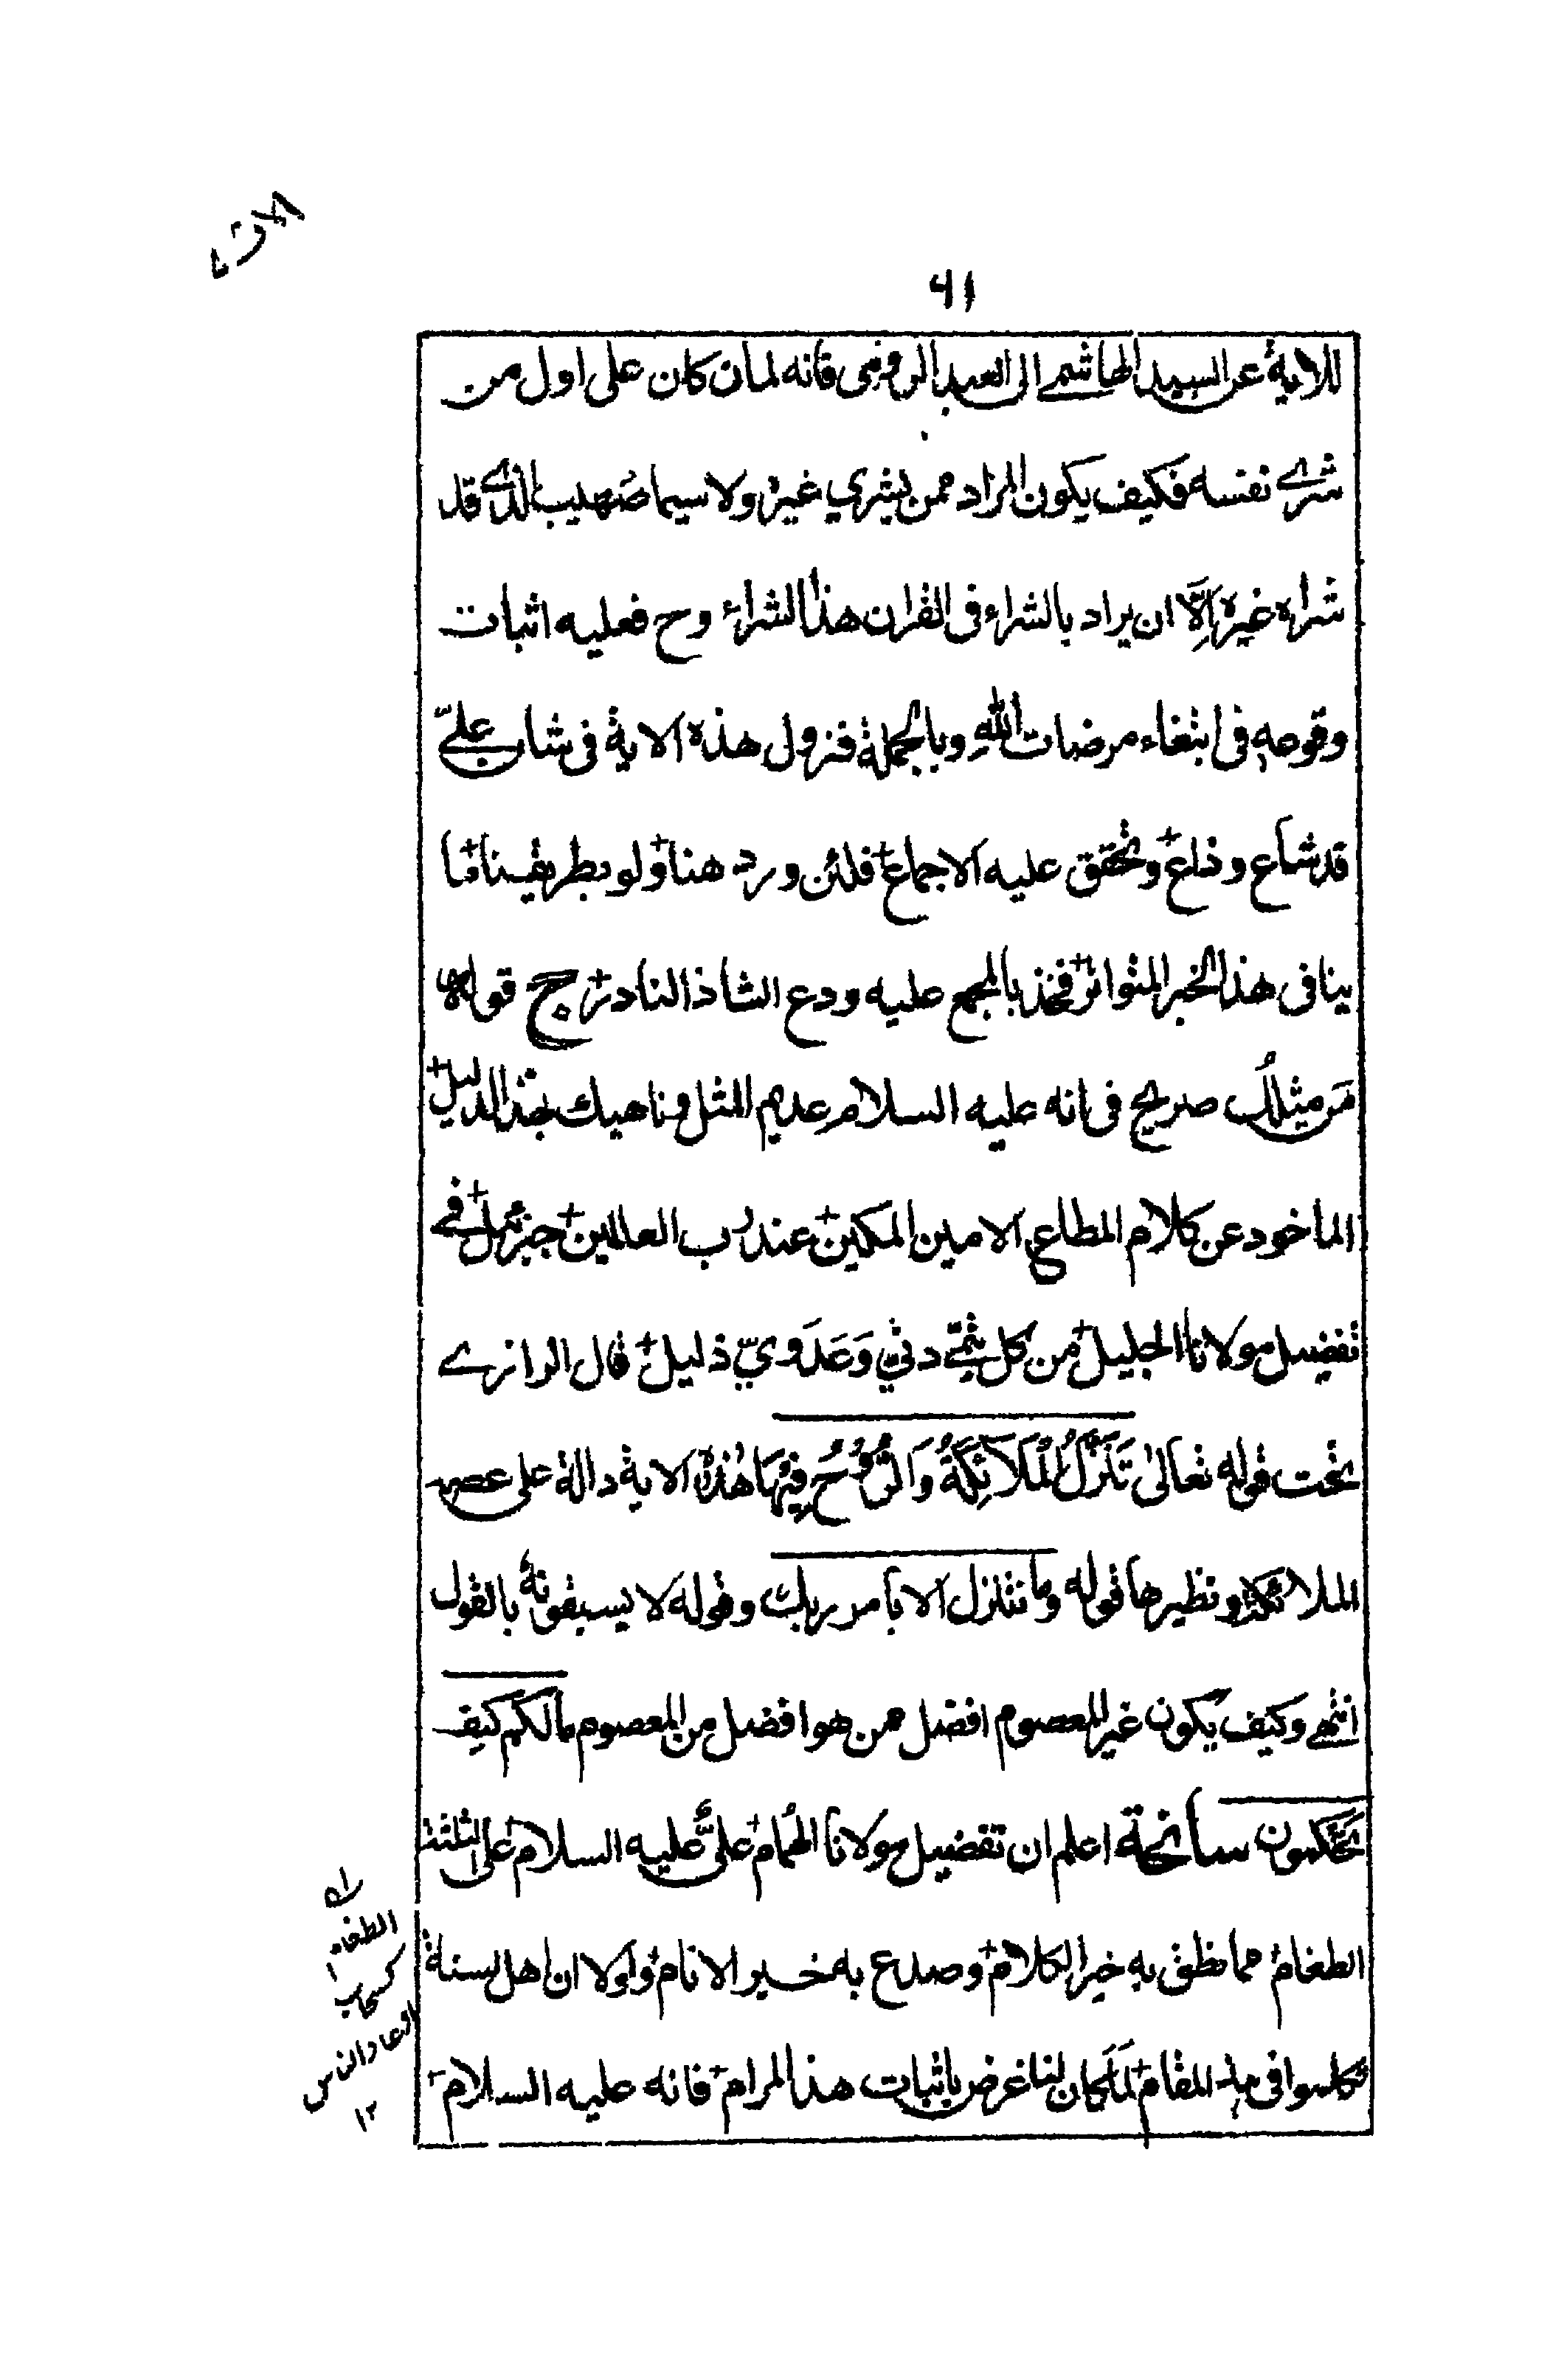 ٦١
للاية عن السيد الهاشمے الى العبد الرومى فانه لما ن كان على اول من
شرے نفسه فكيف يكون المراد ممن يشري غيره ولا سيما صهيب الذے قد
شراه غيره اِلَّا ان يراد بالشراء فى القران هذا الشراء وح فعليه اثبات
وقوعه فى ابتغاء مرضات اللهِ وبالجملة فنزول هذه الاية فى شان علےّ
قد شاع وذاع وتحقق عليه الاجماع فلئن ورد هنا ولو بطريقنا ما
ينافى هذا الخبر المتواتر فخذ بالمجمع عليه ودع الشاذ النادر ج قوله
مَن مثلك صريح فى انه عليه السلام عديم المثل وناهيك بهذا الدليل
الماخود عن كلام المطاع الامين المكين عند رب العالمين جبرئيل فے
تفضيل مولانا الجليل من كل تيمّے دنيّ وَعَدَويّ ذليل قال الرازے
تحت قوله تعالىٰ تَنَزَّلُ الْمَلَائِكَةُ وَالرُّوْحُ فِيْهَا هٰذه الاية دالة على عصمة
الملائكة ونظيرها قوله وما نتنزل الا بامر ربك وقوله لا يسبقونهٗ بالقول
انتهے وكيف يكون غير المعصوم افضل ممن هو افضل من المعصوم مالكم كيف
تحكمون سانحة اعلم ان تفضيل مولانا الهُمام علىّ عليه السلام على الثلثة
الطغام مما نطق به خير الكلام وصدع به خير الانام ولولا ان اهل السنة
تكلموا فى هذا المقام لَمَا كان لنا غرض باثبات هذا المرام فانه عليه السلام
الطغام
كسحاب
اوغاد الناس
١٢